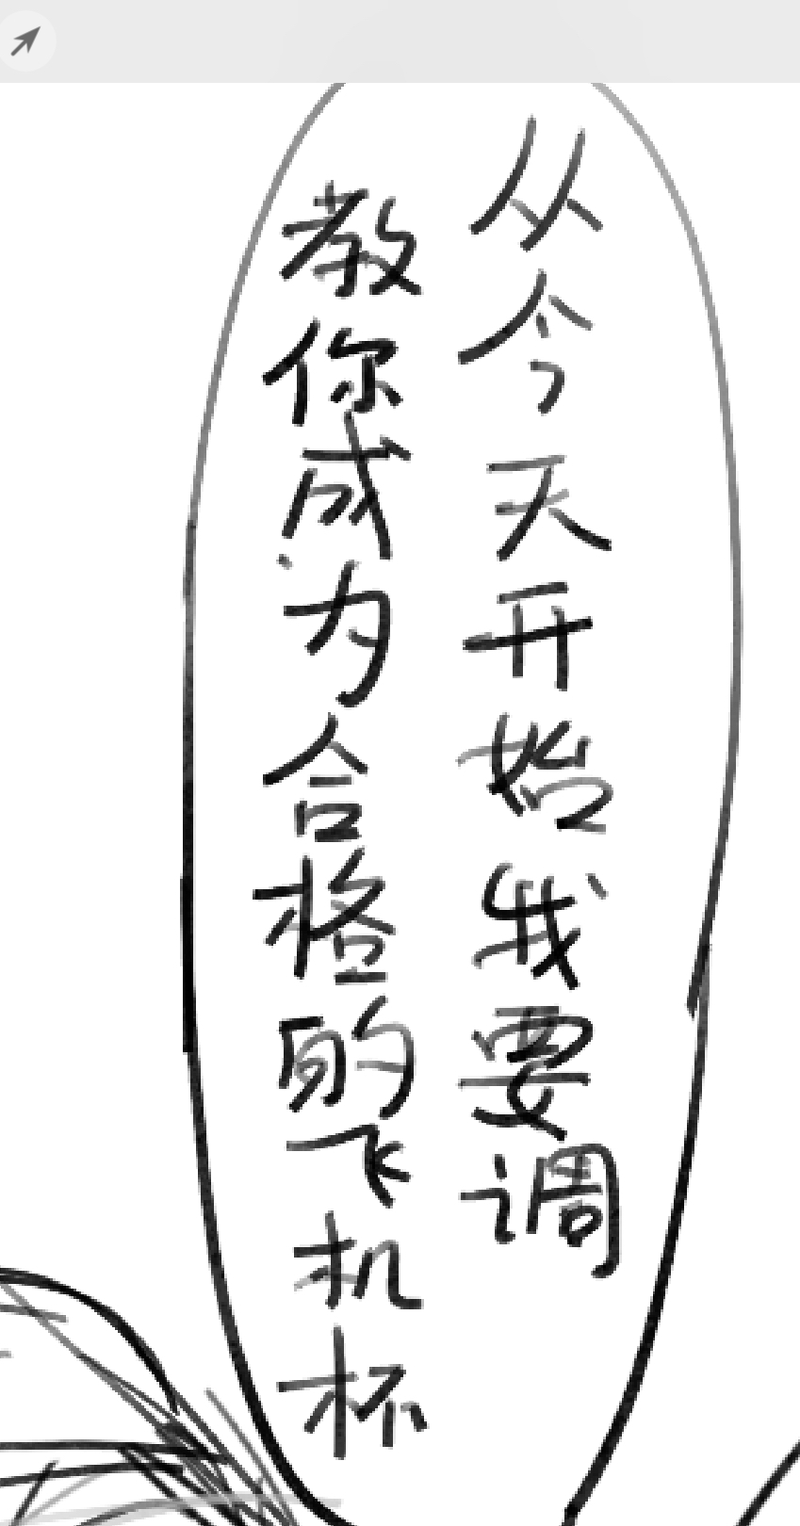 从今天开始我要调
教你成为合格的飞机杯